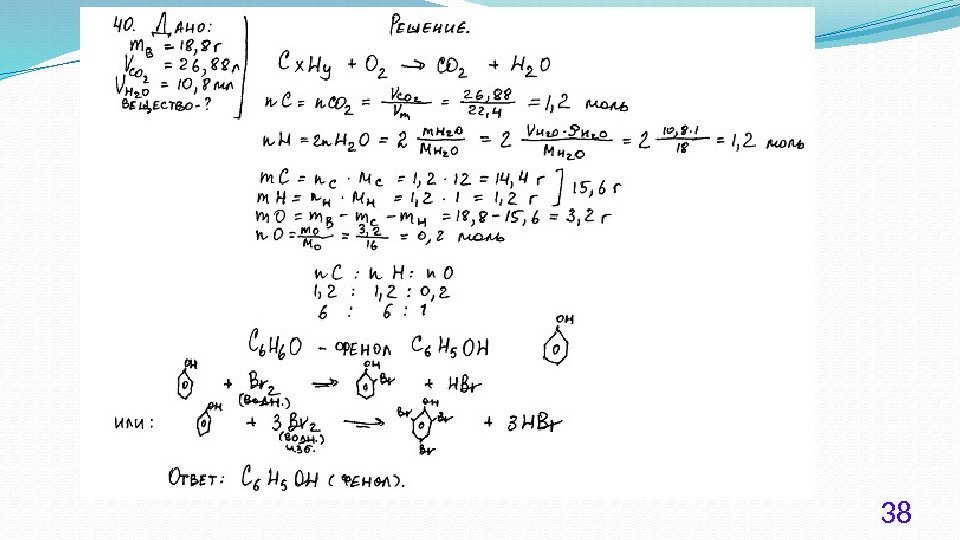 40. Дано: Решение.
mв = 18,8 г
Vco₂ = 26,88 л
Vн₂о = 10,8 мл
вещество - ?
CxHy + O₂ → CO₂ + H₂O
nC = nCO₂ = Vco₂/Vm = 26,88/22,4 = 1,2 моль
nH = 2nH₂O = 2 mH₂O/MH₂O = 2 VH₂O·ρH₂O/MH₂O = 2 10,8·1/18 = 1,2 моль
mC = nC · MC = 1,2 · 12 = 14,4 г ] 15,6 г
mH = nH · MH = 1,2 · 1 = 1,2 г
mO = mв - mC - mH = 18,8 - 15,6 = 3,2 г
nO = mO/MO = 3,2/16 = 0,2 моль
nC : nH : nO
1,2 : 1,2 : 0,2
6 : 6 : 1
C₆H₆O - фенол C₆H₅OH OH
OH + Br₂ (водн.) → OH Br + HBr
или: OH + 3Br₂ (водн.) изб. → Br OH Br Br + 3HBr
Ответ: C₆H₅OH (фенол).
38